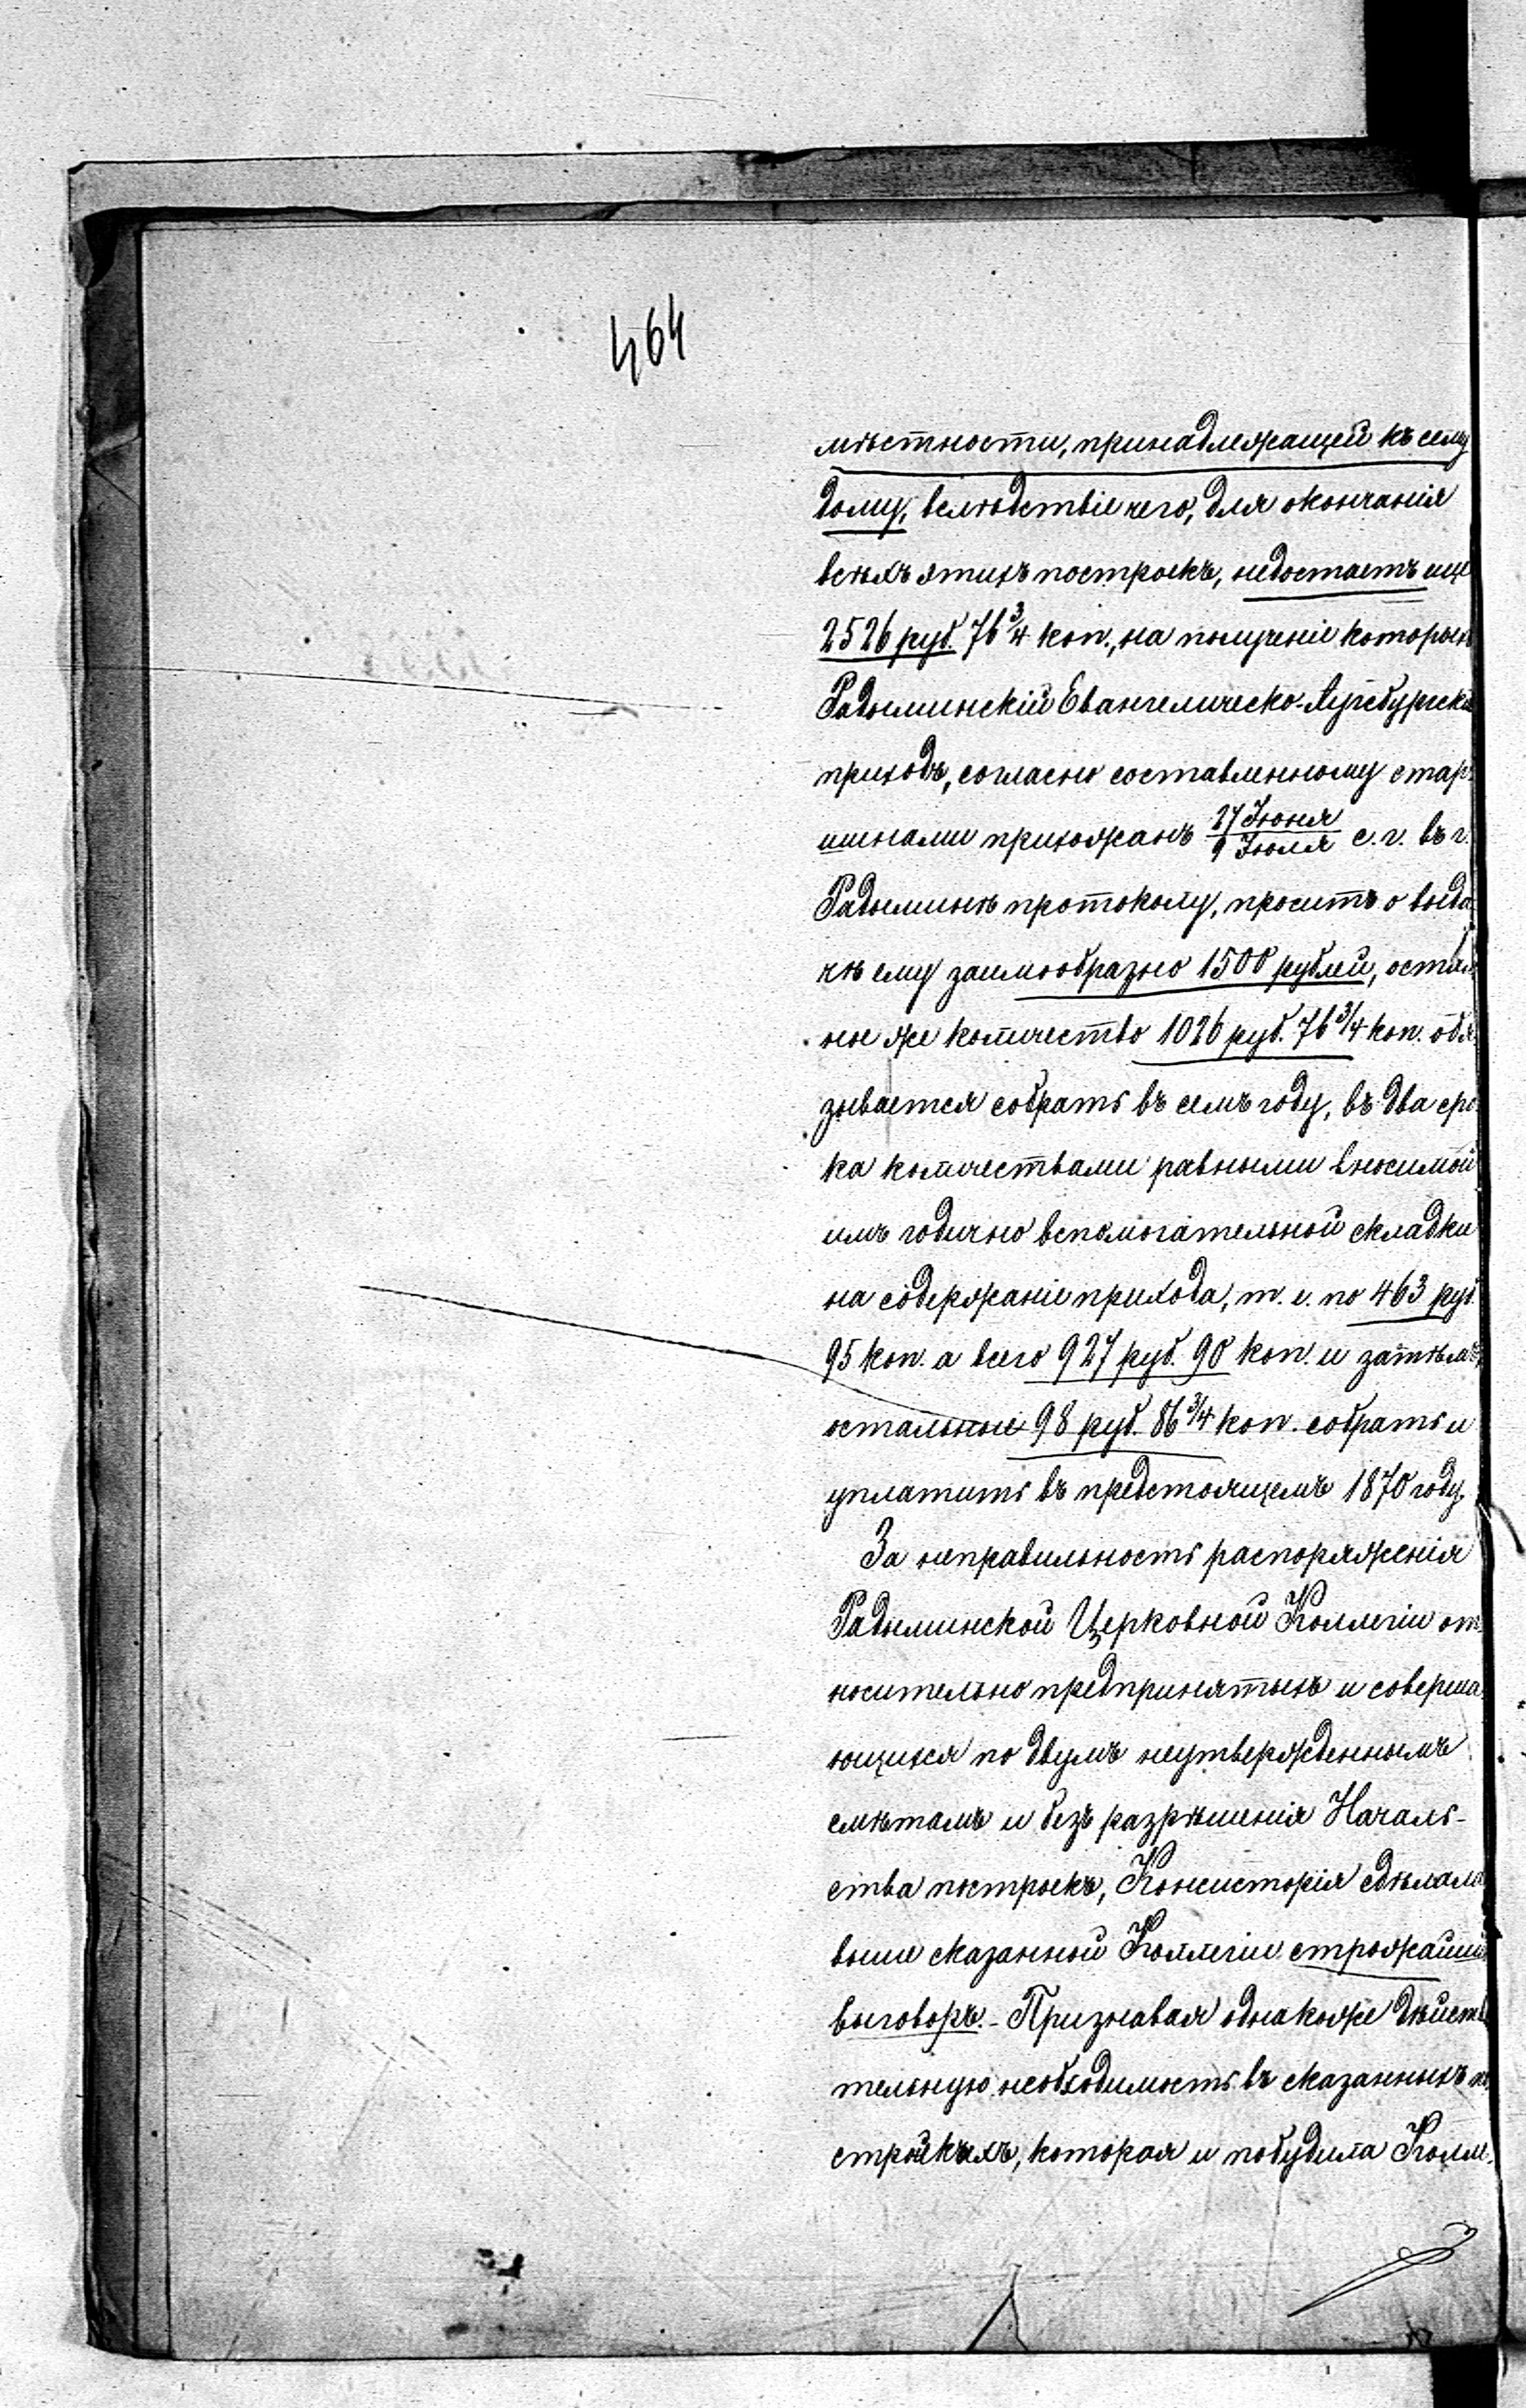 464
мѣстности, принадлежащей къ сему
дому, вслѣдствіе чего, для окончанія
всѣхъ этихъ построекъ, недостаетъ еще
2526 руб. 76 3/4 коп., на полученіе которыхъ
Радыминскій Евангелическо-Аугсбургскі
приходъ, согласно составленному стар-
шинами прихожанъ 27 Іюня/9 Іюля с. г. въ г.
Радыминѣ протоколу, проситъ о выда-
чѣ ему заимообразно 1500 рублей, осталь
ное же количество 1026 руб. 76 3/4 коп. обя-
зывается собрать въ семъ году, въ два сро-
ка количествами равными вносимой
имъ годично вспомогательной складки
на содержаніе прихода, т. е. по 463 руб.
95 коп. а всего 927 руб. 90 коп. и затѣмъ
остальные 98 руб. 86 3/4 коп. собрать и
уплатить въ предстоящемъ 1870 году.
За неправильность распоряженія
Радыминской Церковной Коллегіи от-
носительно предпринятыхъ и соверша-
ющихся по двумъ неутвержденнымъ
смѣтамъ и безъ разрѣшенія Началь-
ства построекъ, Консисторія сдѣлала
выше сказанной Коллегіи строжайшій
выговоръ. - Признавая однакоже дѣйстви
тельную необходимость въ сказанныхъ по
стройкахъ, которая и побудила Колле-